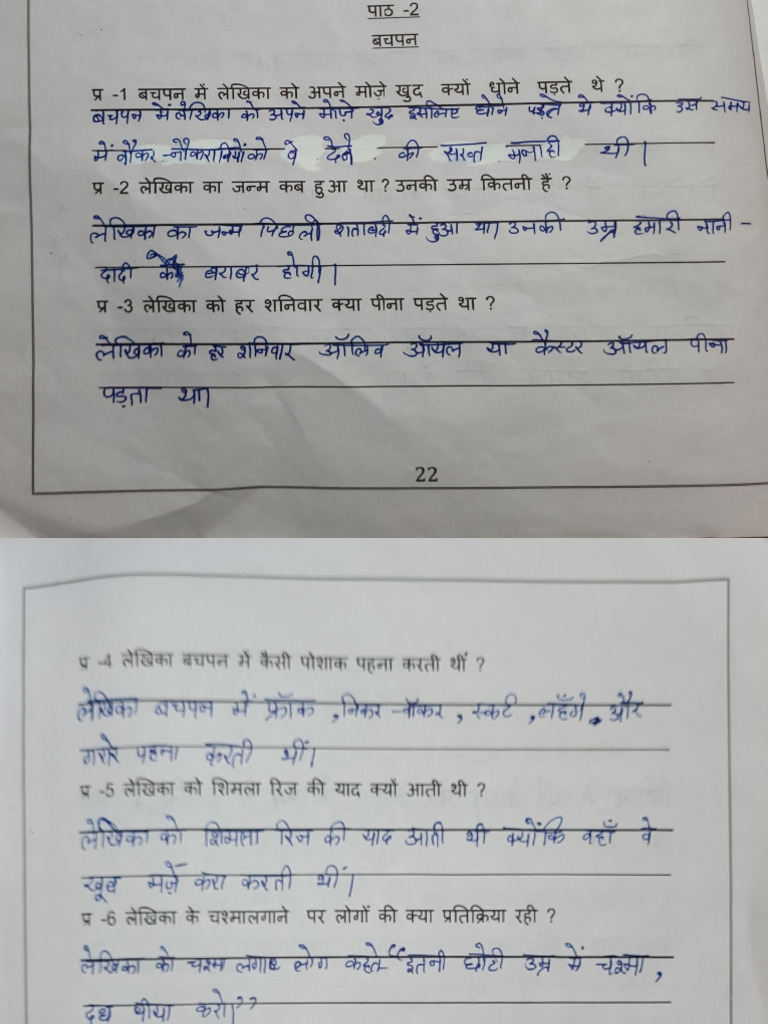 पाठ -2
बचपन
प्र -1 बचपन में लेखिका को अपने मोज़े खुद क्यों धोने पड़ते थे ?
बचपन में लेखिका को अपने मोज़े खुद इसलिए धोने पड़ते थे क्योंकि उस समय
में नौकर-नौकरानियों को वे देने की सख्त मनाही थी।
प्र -2 लेखिका का जन्म कब हुआ था ? उनकी उम्र कितनी हैं ?
लेखिका का जन्म पिछली शताबदी में हुआ था। उनकी उम्र हमारी नानी -
दादी के बराबर होगी।
प्र -3 लेखिका को हर शनिवार क्या पीना पड़ते था ?
लेखिका को हर शनिवार ऑलिव ऑयल या कैस्टर ऑयल पीना
पड़ता था।
22
प्र -4 लेखिका बचपन में कैसी पोशाक पहना करती थीं ?
लेखिका बचपन में फ्रॉक , निकर-वॉकर , स्कर्ट , लहँगे , और
गरारे पहना करती थीं।
प्र -5 लेखिका को शिमला रिज की याद क्यों आती थी ?
लेखिका को शिमला रिज की याद आती थी क्योंकि वहाँ वे
खूब मज़े करा करती थीं।
प्र -6 लेखिका के चश्मालगाने पर लोगों की क्या प्रतिक्रिया रही ?
लेखिका को चश्म लोग कहते "इतनी छोटी उम्र में चश्मा ,
दूध पीया करो।"